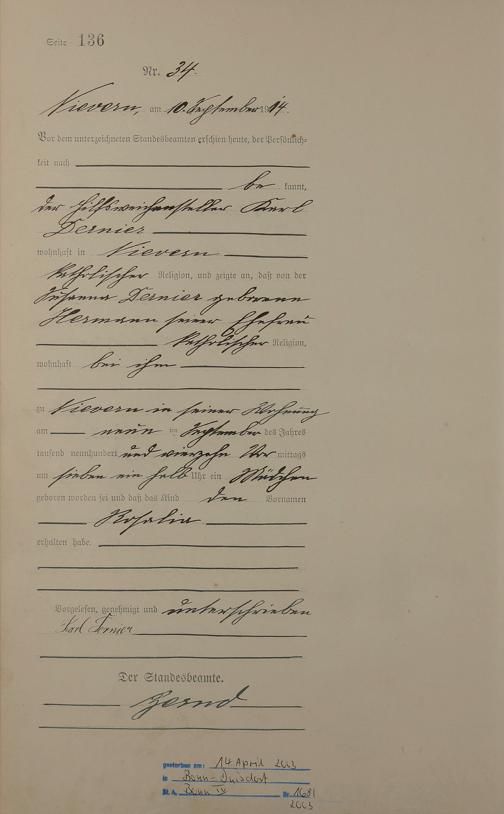 Seite 136
Nr. 34.
Nievern, am 10. September 1914.
Vor dem unterzeichneten Standesbeamten erschien heute, der Persönlich-
keit nach
be kannt,
der Hilfsweichensteller Karl
Dernier
wohnhaft in Nievern
katholischer Religion, und zeigte an, daß von der
Susanna Dernier geborene
Hermann seiner Ehefrau
katholischer Religion,
wohnhaft bei ihm
zu Nievern in seiner Wohnung
am neun ten September des Jahres
tausend neunhundert und vierzehn Vor mittags
um sieben ein halb Uhr ein Mädchen
geboren worden sei und daß das Kind den Vornamen
Rosalia
erhalten habe.
Vorgelesen, genehmigt und unterschrieben
Karl Dernier
Der Standesbeamte.
gestorben am: 14 April 2003
in Bonn-Duisdorf
St. A. Bonn IV Nr.
2003